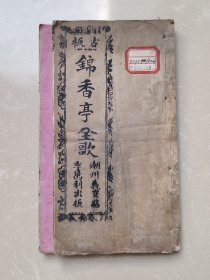 古板
錦香亭全歌
潮州義安路
李萬利出版